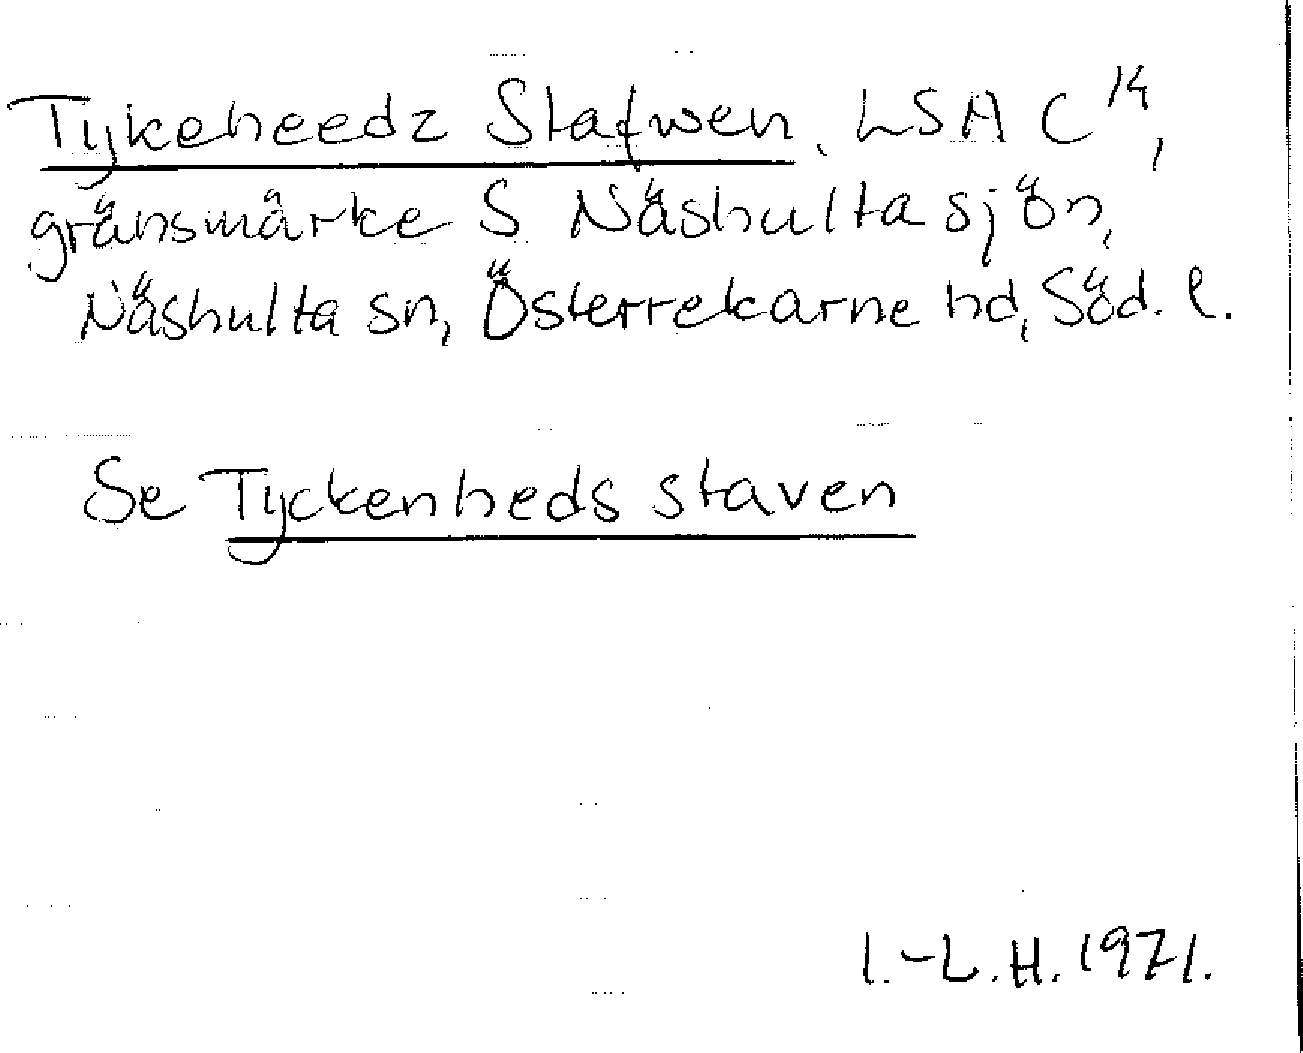 Tykeheedz Stafwen, LSA C 14,
gränsmärke S Näshulta sjön,
Näshulta sn, Österrekarne hd, Söd. l.
Se Tyckenheds staven
I.-L. H. 1971.